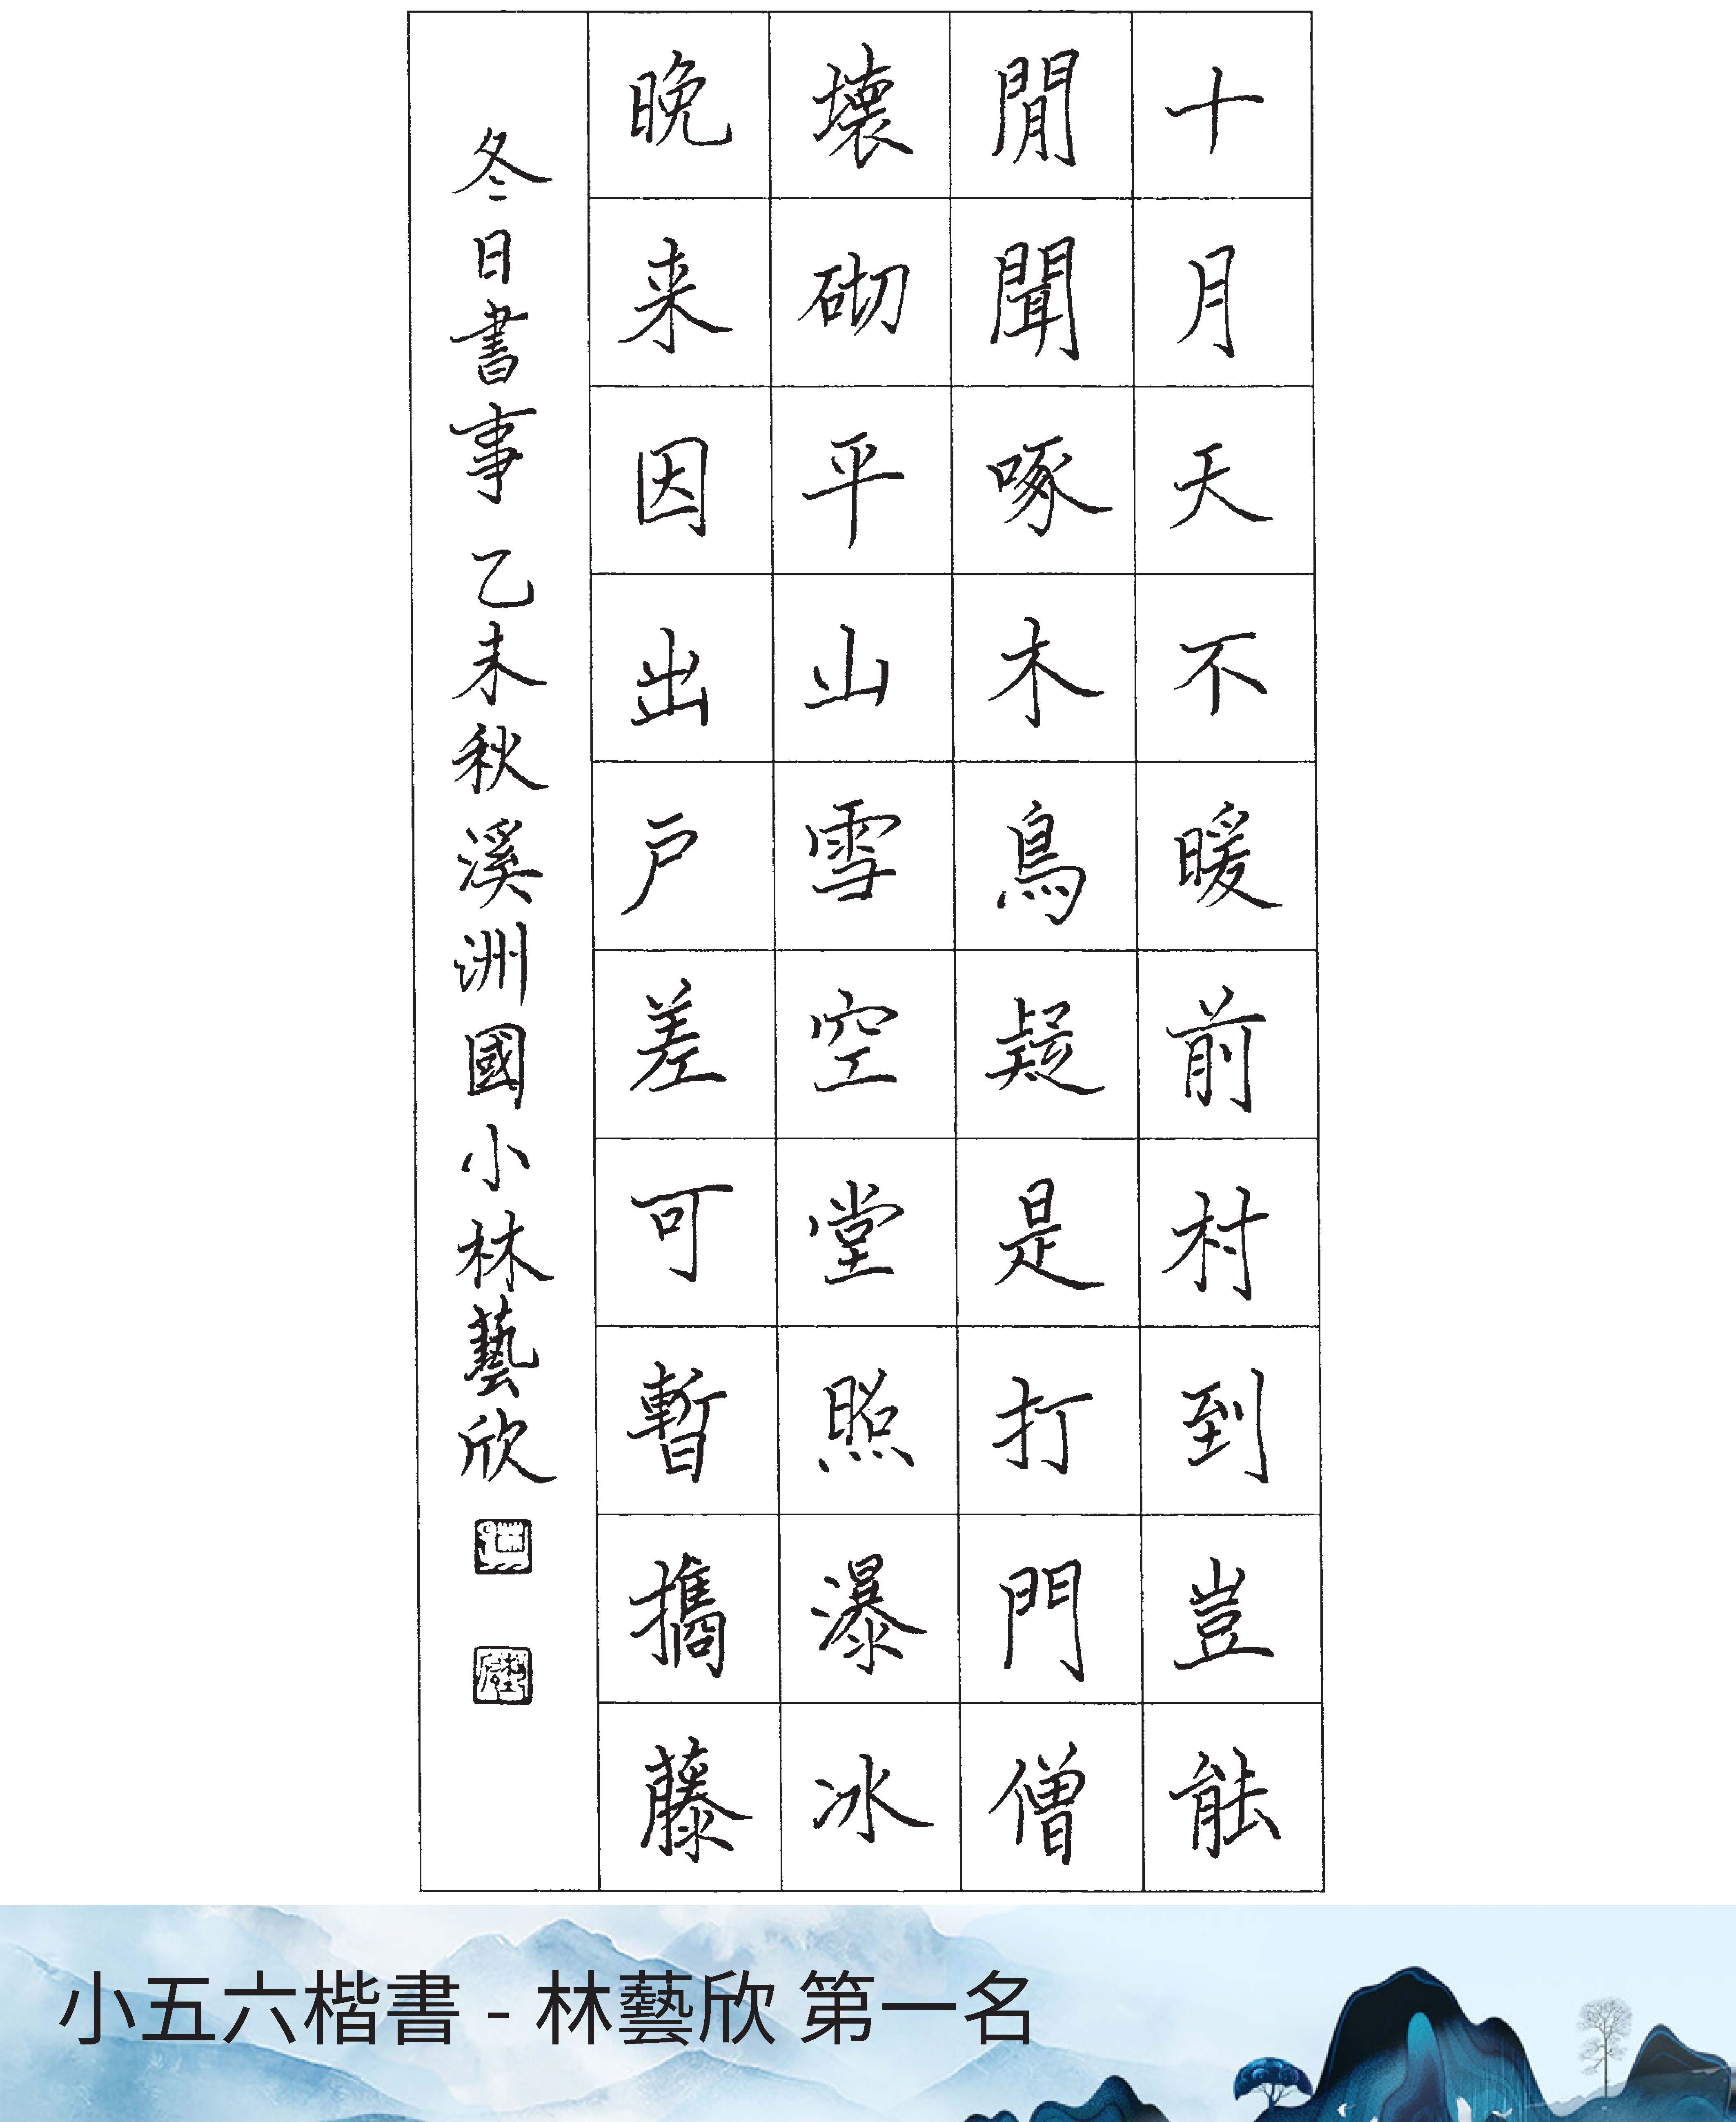 十月天不暖前村到豈能
閒聞啄木鳥疑是打門僧
壞砌平山雪空堂照瀑冰
晚来因出戶差可暫攜藤
冬日書事 乙未秋溪洲國小林藝欣
小五六楷書 - 林藝欣 第一名